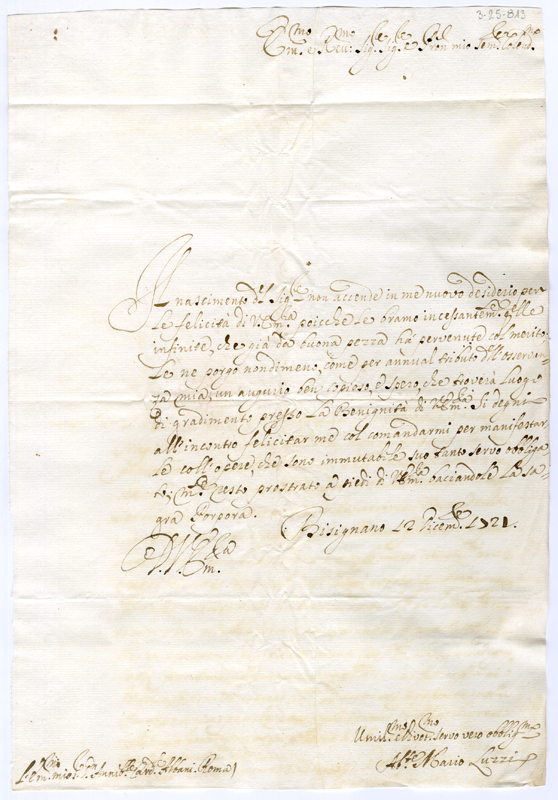 3-25-813
Em.mo e Rev.mo Sig.re Sig.re e Pron mio
Il nascimento del Sig.re non accende in me nuovo desiderio per
le felicità di V.Em.za poicche le bramo incessantem.te q.lle
infinite, che già da buona pezza ha pervenute col merito
le ne porgo nondimeno, come per annual tributo dell'osservan-
za mia, un augurio ben copioso, e spero, che troverà luogo
di gradimento presso la Benignità di V.Em.za. Si degni
all'incontro felicitar me col comandarmi per manifestar
le coll'opere, che sono immutabile suo tanto servo obbliga
to; m.re resto prostrato a piedi di V.Em.za baciandole la sa-
gra Porpora.
Bisignano 12 Dicem.re 1721.
D.V.Em.za
Umil.mo Divot.mo servo vero obblig.mo
Mario Luzzi
Card.le Albani. Roma